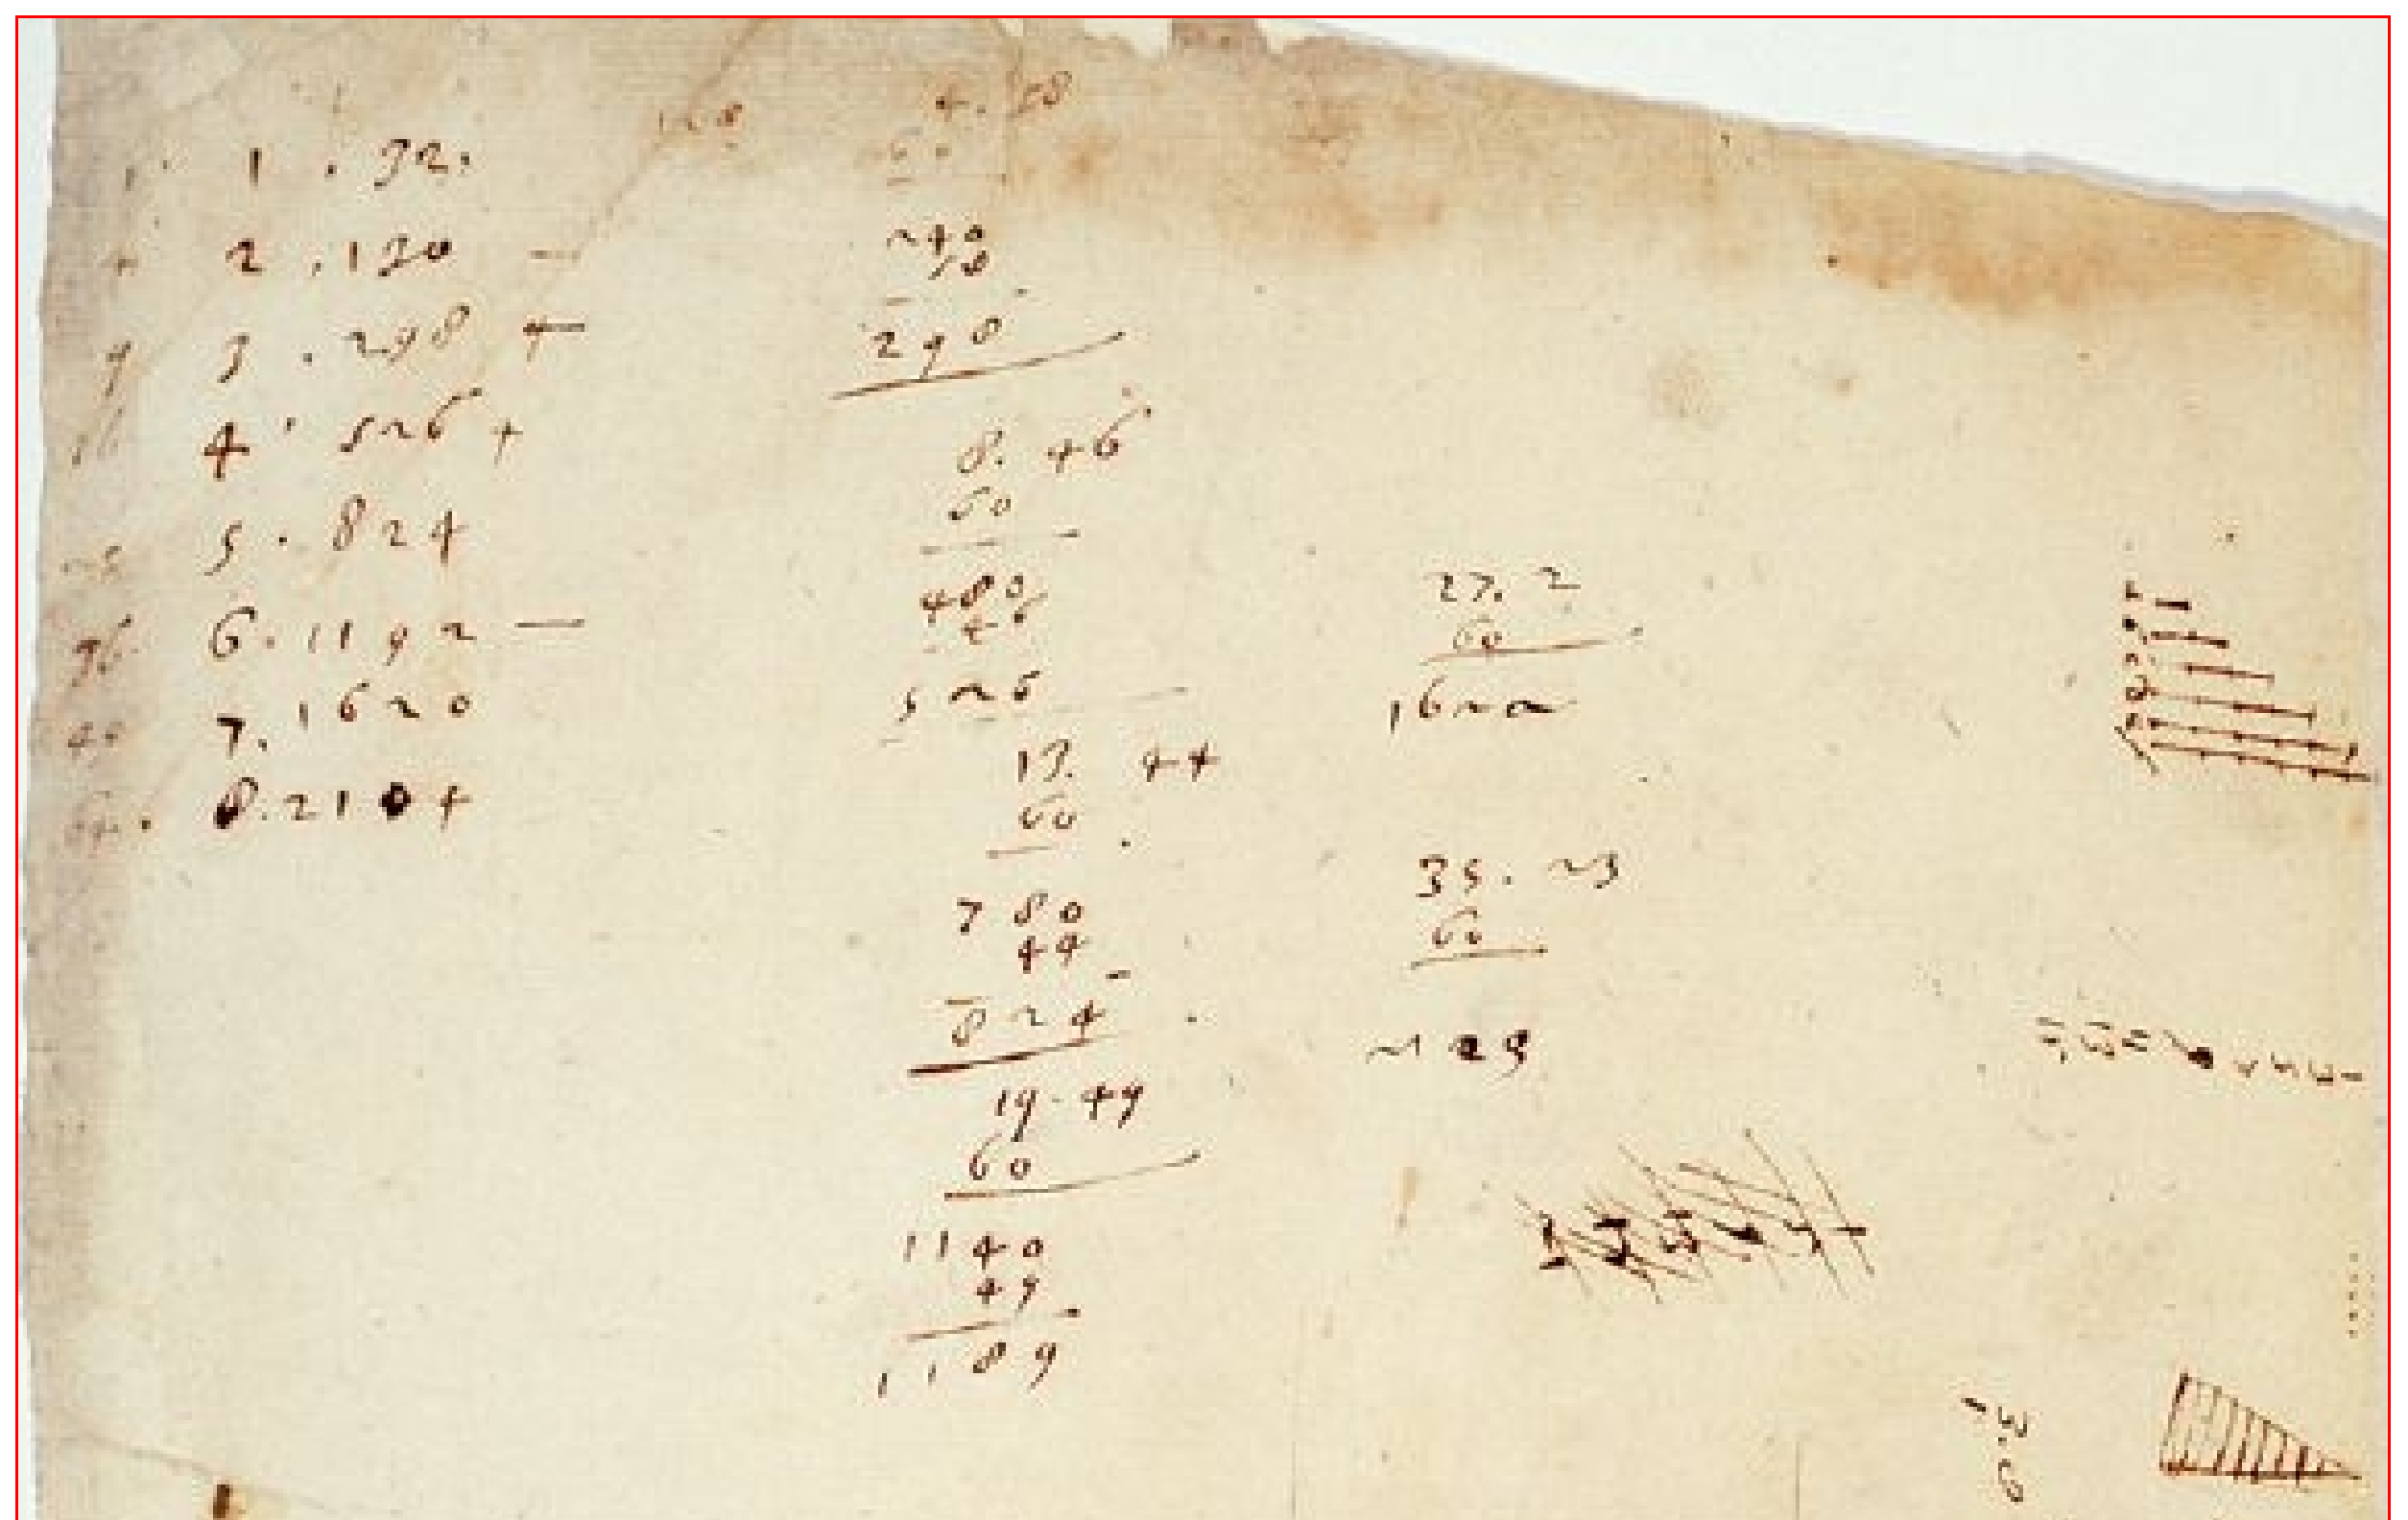 1. 1 . 32.
4 2 . 130 —
9 3 . 298 +
16 4 . 526 +
25 5 . 824
36 6. 1192 —
49 7. 1620
64. 8. 2104
4. 58
60
240
58
298
8. 46
60
480
46
526
13. 44
60
780
44
824
19. 49
60
1140
49
1189
27. 2
60
1622
35. 23
60
2123